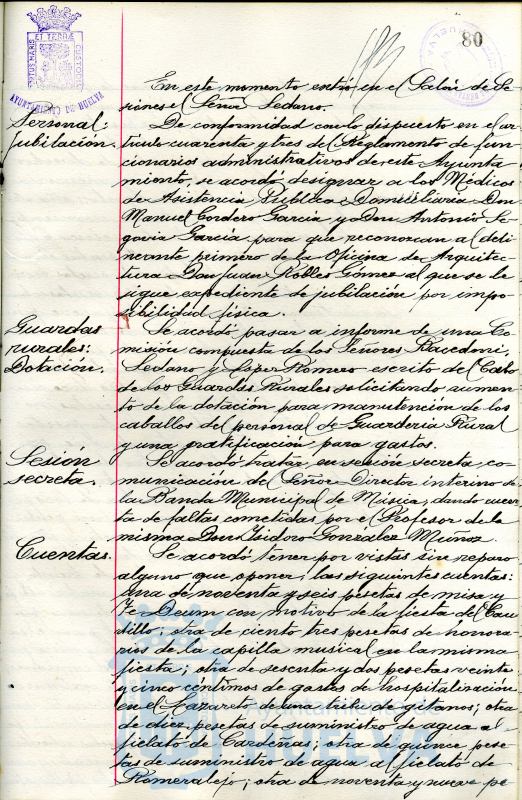 80
AYUNTAMIENTO DE HUELVA
En este momento entró en el Salón de Se-
siones el Señor Sedano.
Personal:
Jubilación.
De conformidad con lo dispuesto en el ar-
tículo cuarenta y tres del Reglamento de fun-
cionarios administrativos de este Ayunta
miento, se acordó designar a los Médicos
de Asistencia Pública Domiciliaria Don
Manuel Cordero García y Don Antonio Se-
govia García para que reconozcan al deli-
neante primero de la Oficina de Arquitec-
tura Don Juan Robles Gómez al que se le
sigue expediente de jubilación por impo-
sibilidad física.
Guardas
rurales:
Dotación.
Se acordó pasar a informe de una Co-
misión compuesta de los Señores
Sedano y López Romero escrito del Cabo
de los Guardas Rurales solicitando aumen-
to de la dotación para manutención de los
caballos del personal de Guardería Rural
y una gratificación para gastos.
Sesión
secreta.
Se acordó tratar, en sesión secreta, co-
municación del Señor Director interino de
la Banda Municipal de Música, dando cuen-
ta de faltas cometidas por el Profesor de la
misma Don Isidoro Gonzalez Muñoz.
Cuentas.
Se acordó tener por vistas sin reparo
alguno que oponer, las siguientes cuentas:
una de noventa y seis pesetas de misa y
Te Deum con motivo de la fiesta del Cau-
dillo; otra de ciento tres pesetas de honora-
rios de la capilla musical en la misma
fiesta; otra de sesenta y dos pesetas veinte
y cinco céntimos de gastos de hospitalización
en el Lazareto de una tribu de gitanos; otra
de diez pesetas de suministro de agua al
fielato de Cardeñas; otra de quince pese
tas de suministro de agua al fielato de
Romeralejo; otra de noventa y nueve pe
Ayuntamiento
HUELVA